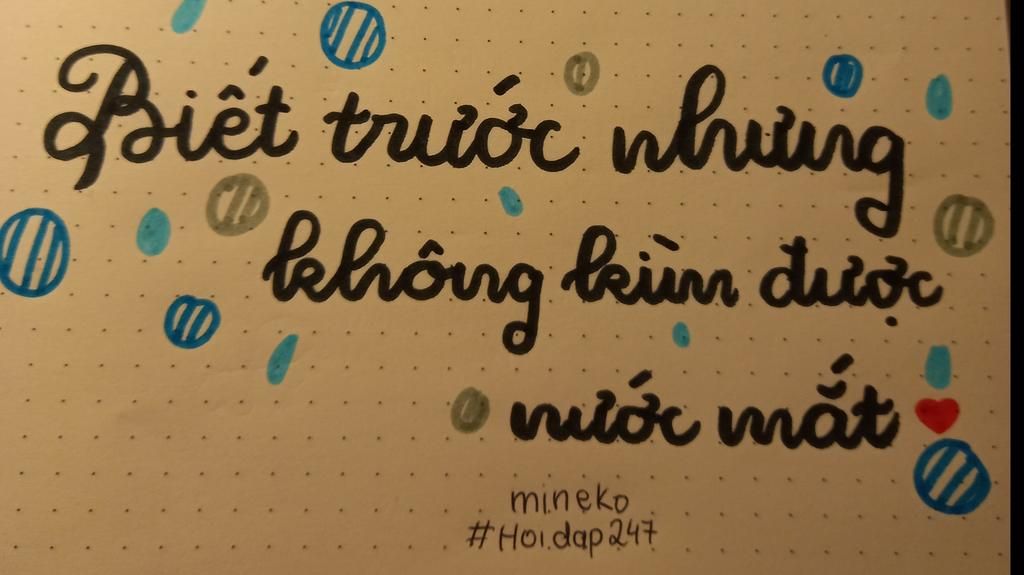 Biết trước nhưng
không kìm được
nước mắt
mineko
#Hoidap247